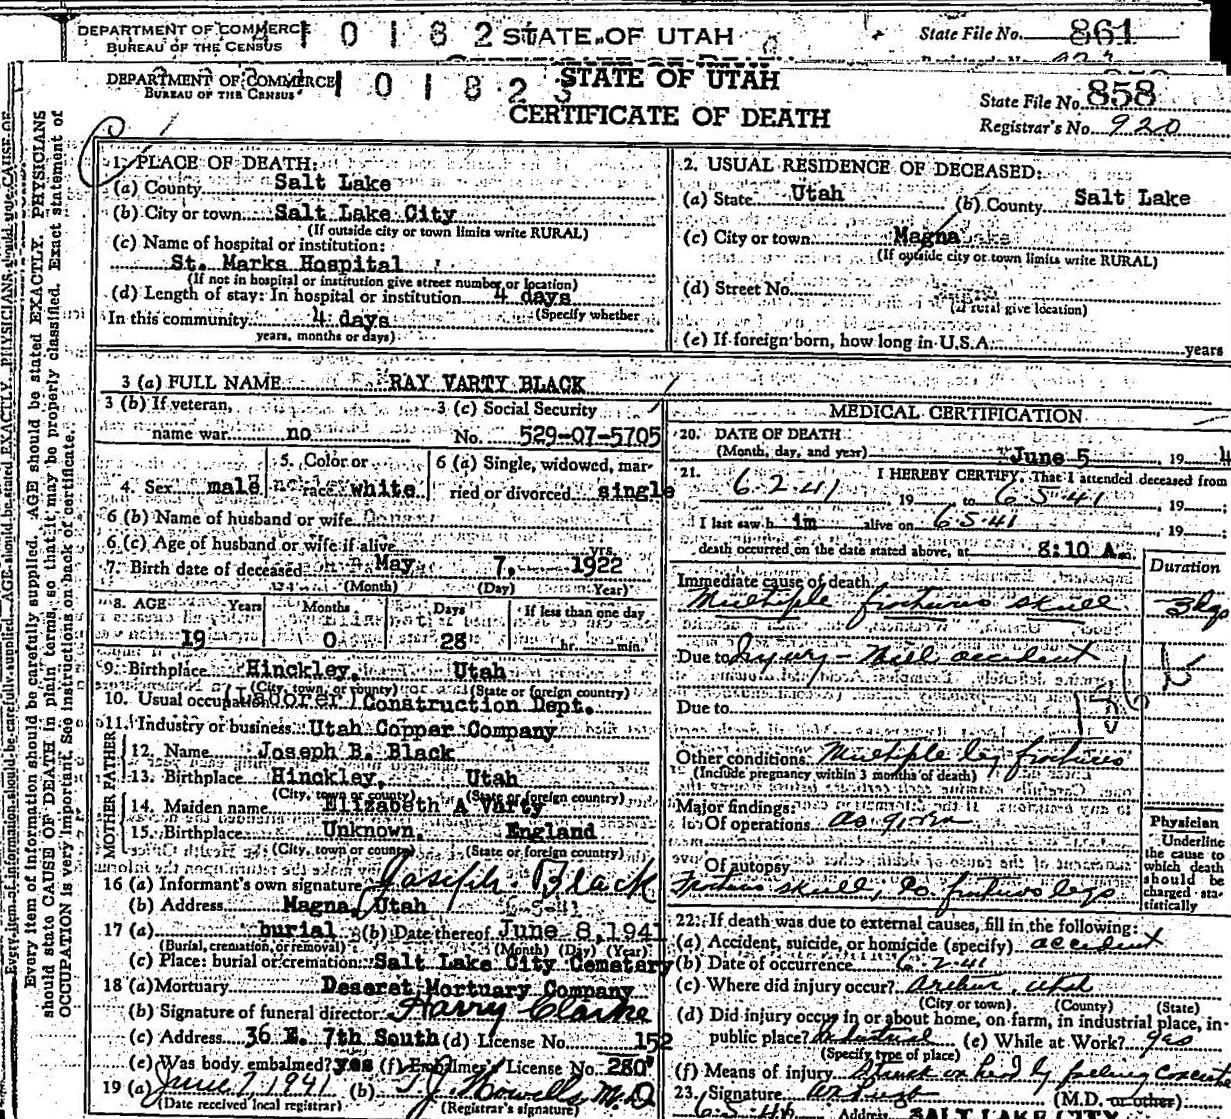 DEPARTMENT OF COMMERCE
BUREAU OF THE CENSUS
1 0 1 8 2
STATE OF UTAH
State File No. 861
DEPARTMENT OF COMMERCE
BUREAU OF THE CENSUS
1 0 1 8 2 3
STATE OF UTAH
CERTIFICATE OF DEATH
State File No. 858
Registrar's No. 920
Every item of information should be carefully supplied. AGE should be stated EXACTLY. PHYSICIANS
should state CAUSE OF DEATH in plain terms, so that it may be properly classified. Exact statement of
OCCUPATION is very important. See instructions on back of certificate.
1. PLACE OF DEATH:
(a) County Salt Lake
(b) City or town Salt Lake City
(If outside city or town limits write RURAL)
(c) Name of hospital or institution:
St. Marks Hospital
(If not in hospital or institution give street number or location)
(d) Length of stay: In hospital or institution 4 days
(Specify whether
In this community 4 days
years, months or days)
2. USUAL RESIDENCE OF DECEASED:
(a) State Utah (b) County Salt Lake
(c) City or town Magna
(If outside city or town limits write RURAL)
(d) Street No.
(If rural give location)
(e) If foreign born, how long in U.S.A. years
3 (a) FULL NAME RAY VARTY BLACK
3 (b) If veteran, 3 (c) Social Security
name war no No. 529-07-5705
4. Sex male 5. Color or race white 6 (a) Single, widowed, married or divorced single
6 (b) Name of husband or wife
6 (c) Age of husband or wife if alive yrs.
7. Birth date of deceased May 7, 1922
(Month) (Day) (Year)
8. AGE Years Months Days If less than one day
19 0 28 hr. min.
9. Birthplace Hinckley, Utah
(City, town, or county) (State or foreign country)
10. Usual occupation (Laborer) Construction Dept.
11. Industry or business Utah Copper Company
FATHER
12. Name Joseph B. Black
13. Birthplace Hinckley, Utah
(City, town or county) (State or foreign country)
MOTHER
14. Maiden name Elizabeth A Varty
15. Birthplace Unknown, England
(City, town or county) (State or foreign country)
16 (a) Informant's own signature Joseph Black
(b) Address Magna, Utah 6-5-41
17 (a) burial (b) Date thereof June 8, 1941
(Burial, cremation, or removal) (Month) (Day) (Year)
(c) Place: burial or cremation Salt Lake City Cemetery
18 (a) Mortuary Deseret Mortuary Company
(b) Signature of funeral director Harry Clarke
(c) Address 36 E. 7th South (d) License No. 152
(e) Was body embalmed? yes (f) Embalmer's License No. 280
19 (a) June 7, 1941 (b) T. J. Howells M.D.
(Date received local registrar) (Registrar's signature)
MEDICAL CERTIFICATION
20. DATE OF DEATH
(Month, day, and year) June 5, 194
21. I HEREBY CERTIFY, That I attended deceased from
6.2.41 19 to 6.5.41, 19
I last saw h im alive on 6.5.41 19
death occurred on the date stated above, at 8:10 A.
Duration
Immediate cause of death
Multiple fractures skull
Due to Injury - Mill accident
Due to
Other conditions Multiple leg fractures
(Include pregnancy within 3 months of death)
Major findings:
Of operations as given
Of autopsy
skull, legs
Physician
Underline
the cause to
which death
should be
charged statistically
22. If death was due to external causes, fill in the following:
(a) Accident, suicide, or homicide (specify) accident
(b) Date of occurrence 6.2.41
(c) Where did injury occur? Arthur, Utah
(City or town) (County) (State)
(d) Did injury occur in or about home, on farm, in industrial place, in
public place? Industrial (e) While at Work? yes
(Specify type of place)
(f) Means of injury Struck on head by falling
23. Signature (M.D. or other)
Address SALT LAKE CITY